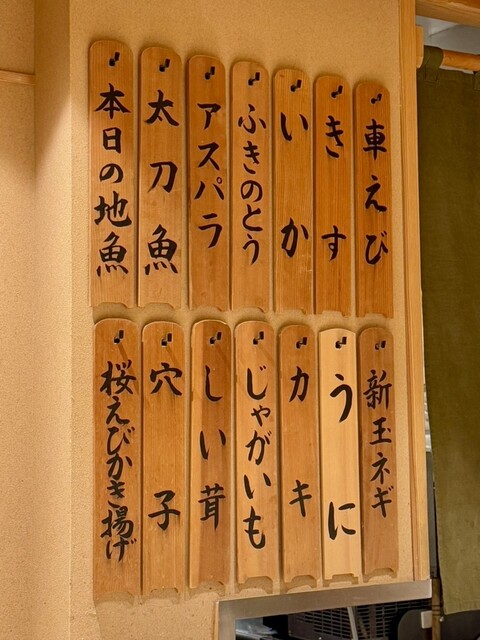 車えび
きす
いか
ふきのとう
アスパラ
太刀魚
本日の地魚
新玉ネギ
うに
カキ
じゃがいも
しい茸
穴子
桜えびかき揚げ